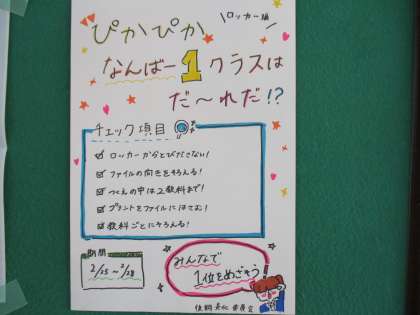 ぴかぴか
ロッカー編
なんばー1クラスは
だ〜れだ!?
チェック項目
ロッカーからとびださない!
ファイルの向きをそろえる!
つくえの中は2教科まで!
プリントをファイルにはさむ!
教科ごとにそろえる!
期間
2/25〜2/28
みんなで
1位をめざそう!
美化委員会